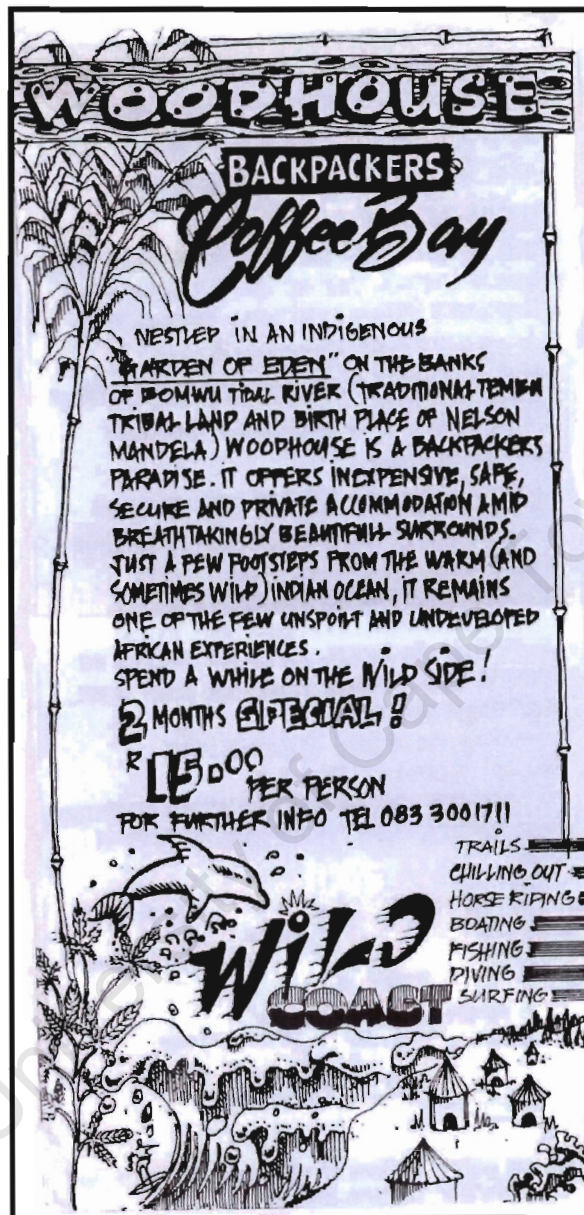 WOODHOUSE
BACKPACKERS
Coffee Bay
NESTLED IN AN INDIGENOUS
"GARDEN OF EDEN" ON THE BANKS
OF BOMWU TIDAL RIVER (TRADITIONAL TEMBU
TRIBAL LAND AND BIRTH PLACE OF NELSON
MANDELA) WOODHOUSE IS A BACKPACKERS
PARADISE. IT OFFERS INEXPENSIVE, SAFE,
SECURE AND PRIVATE ACCOMMODATION AMID
BREATHTAKINGLY BEAUTIFULL SURROUNDS.
JUST A FEW FOOTSTEPS FROM THE WARM (AND
SOMETIMES WILD) INDIAN OCEAN, IT REMAINS
ONE OF THE FEW UNSPOILT AND UNDEVELOPED
AFRICAN EXPERIENCES.
SPEND A WHILE ON THE WILD SIDE!
2 MONTHS SPECIAL!
R 15.00
PER PERSON
FOR FURTHER INFO TEL 083 3001711
TRAILS
CHILLING OUT
HORSE RIDING
BOATING
FISHING
DIVING
SURFING
WiLD
COAST
University of Cape To